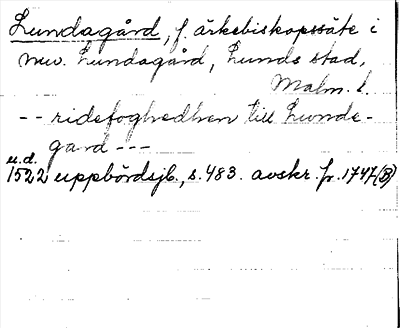 Lundagård, f. ärkebiskopssäte i
nuv. Lundagård, Lunds stad,
Malm. l.
-- ridefoghedhen till Lunde-
gard ---
u.d.
1522 uppbördsjb., s. 483. avskr. fr. 1747(B)